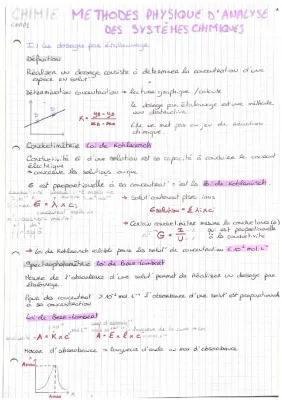 CHIMIE METHODES PHYSIQUE D'ANALYSE
CHAP1 DES SYSTÈMES CHIMIQUES
I) les dosages par étalonnage
Définition
Réaliser un dosage consiste à déterminer la concentration d'une
espèce en solut°
Détermination concentration → lecture graphique / calcule
le dosage par étalonnage est une méthode
non destructive
K = yB - yA / xB - xA
Elle ne met pas en jeu de réaction
chimique.
Conductimétrie loi de Kohlrausch
Conductivité σ d'une solution est sa capacité à conduire le courant
électrique
concerne les solutions ionique
σ est proportionnelle à sa concentration : c'est la loi de Kohlrausch.
→ Solut° contenant plsrs ions
σ = λ × c
σ solution = Σ λi × ci
→ Cellule conductimétrique mesure la conductance (G)
G = I / U
est proportionnelle
à la conductivité
→ loi de Kohlrausch valable pour la solut° de concentration ≤ 10⁻² mol.L⁻¹
Spectrophotométrie loi de Beer-Lambert
Mesure de l'absorbance d'une solut° permet de réaliser un dosage par
étalonnage.
Pour des concentrat° > 10⁻² mol L⁻¹ l'absorbance d'une solut° est proportionnelle
à sa concentration
Loi de Beer-Lambert
A = K × c A = ε × l × c
Mesure d'absorbance → longueur d'onde au max d'absorbance
A
Amax
λmax